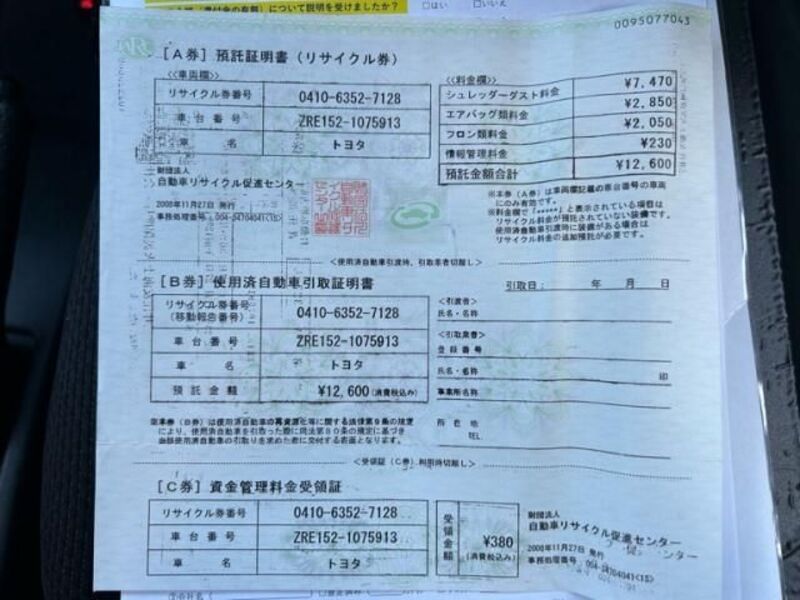 について説明を受けましたか？ □はい □いいえ
0095077043
［A券］預託証明書（リサイクル券）
≪車両欄≫
リサイクル券番号 0410-6352-7128
車台番号 ZRE152-1075913
車名 トヨタ
≪料金欄≫
シュレッダーダスト料金 ¥7,470
エアバッグ類料金 ¥2,850
フロン類料金 ¥2,050
情報管理料金 ¥230
預託金額合計 ¥12,600
財団法人
自動車リサイクル促進センター
2008年11月27日 発行
※本券（A券）は車両欄記載の車台番号の車両
にのみ有効です。
※料金欄で「*****」と表示されている項目は
リサイクル料金が預託されていない装備です。
使用済自動車引渡時に装備がある場合は
リサイクル料金の追加預託が必要です。
＜使用済自動車引渡時、引取業者切離し＞
［B券］使用済自動車引取証明書
引取日： 年 月 日
リサイクル券番号
（移動報告番号） 0410-6352-7128
車台番号 ZRE152-1075913
車名 トヨタ
預託金額 ¥12,600（消費税込み）
＜引渡者＞
氏名・名称
＜引取業者＞
登録番号
氏名・名称 印
事業所名称
所在地
TEL.
※本券（B券）は使用済自動車の再資源化等に関する法律第９条の規定
により、使用済自動車を引取った際に同法第８０条の規定に基づき
当該使用済自動車の引取りを求めた者に交付する書面となります。
＜受領証（C券）利用時切離し＞
［C券］資金管理料金受領証
リサイクル券番号 0410-6352-7128
車台番号 ZRE152-1075913
車名 トヨタ
受領金額 ¥380
（消費税込み）
財団法人
自動車リサイクル促進センター
2008年11月27日 発行